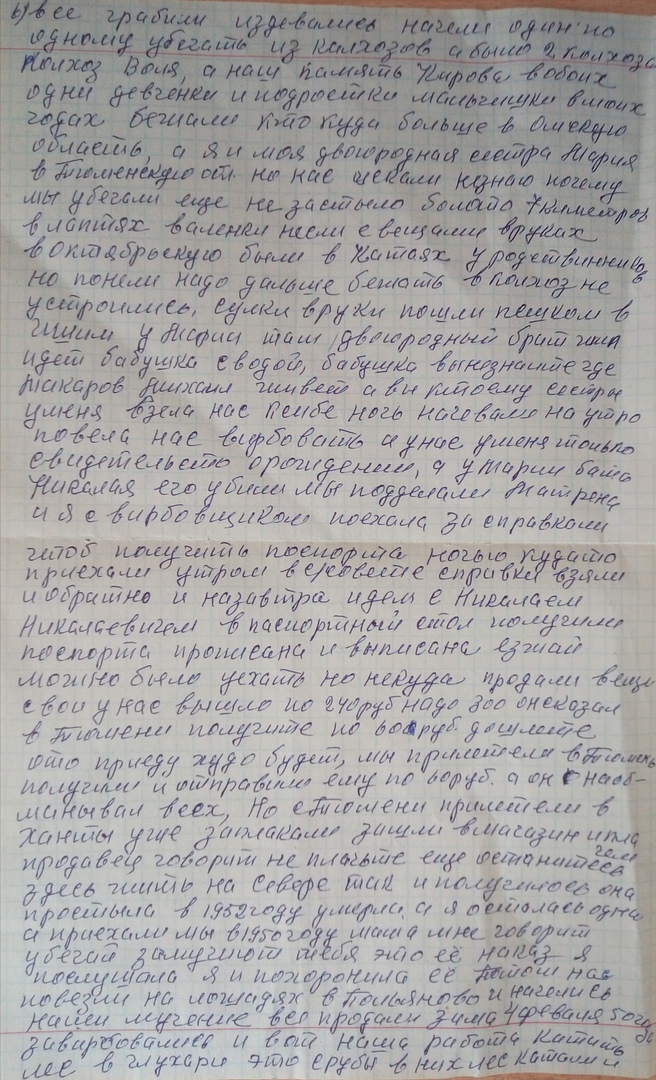 6) все грабили издевались начели один по
одному убегать из калхозов а было 2 колхоза
колхоз Воля, а наш Память Кирова в обоих
одни девченки и подростки мальчишки в моих
годах бежали кто куда больше в Омскую
область, а я и моя двоюродная сестра Мария
в Тюменскую от но нас искали незнаю почему
мы убегали еще не застыло болото 7 килметров
в лаптях валенки несли с вещами в руках
в Октябрьскую были в Катаях у родствинников
но понели надо дальше бежать в колхоз не
устроились, сумки в руки пошли пешком в
Ишим у Марии там двоюродный брат жил
идет бабушка с водой, бабушка вы незнаите где
Макаров Михаил живет а вы кто ему сестры
у меня взела нас к себе ночь начевали на утро
повела нас вирбовать а у нас у меня только
свидетельсть орождении, а у Марии бата
Николая его убили мы подделали Матрена
и я с вирбовщиком поехала за справками
чтоб получить поспорта ночью кудато
приехали утром в с/совете справки взяли
и обратно и назавтра идем с Николаем
Николаевичем в паспортный стол получили
поспорта прописана и выписана езжай
можно было уехать но некуда продали вещи
свои у нас вышло по 240 руб надо 300 он сказал
в Тюмени получите по 60 руб. дошлете
ото приеду худо будет, мы прилетели в Тюмень
получили и отправили ему по 60 руб. а он нас об-
манывал всех, Но с Тюмени прилетели в
Ханты уже заплакали зашли в магазин и пла
чем
продавец говорит не плачьте еще останитесь
здесь жить на Севере так и получилось она
простыла в 1952 году умерла, а я осталась одна
а приехали мы в 1950 году маша мне говорит
убегай замучиют тебя это её наказ я
послушала я и похоронила её Потом нас
повезли на лошадях в Тюльяново и начелись
нашей мучение все продали зима 4 феваля 50 года
завирбовались и вот наша работа катить
лес в глухари это срубы в них лес катали и